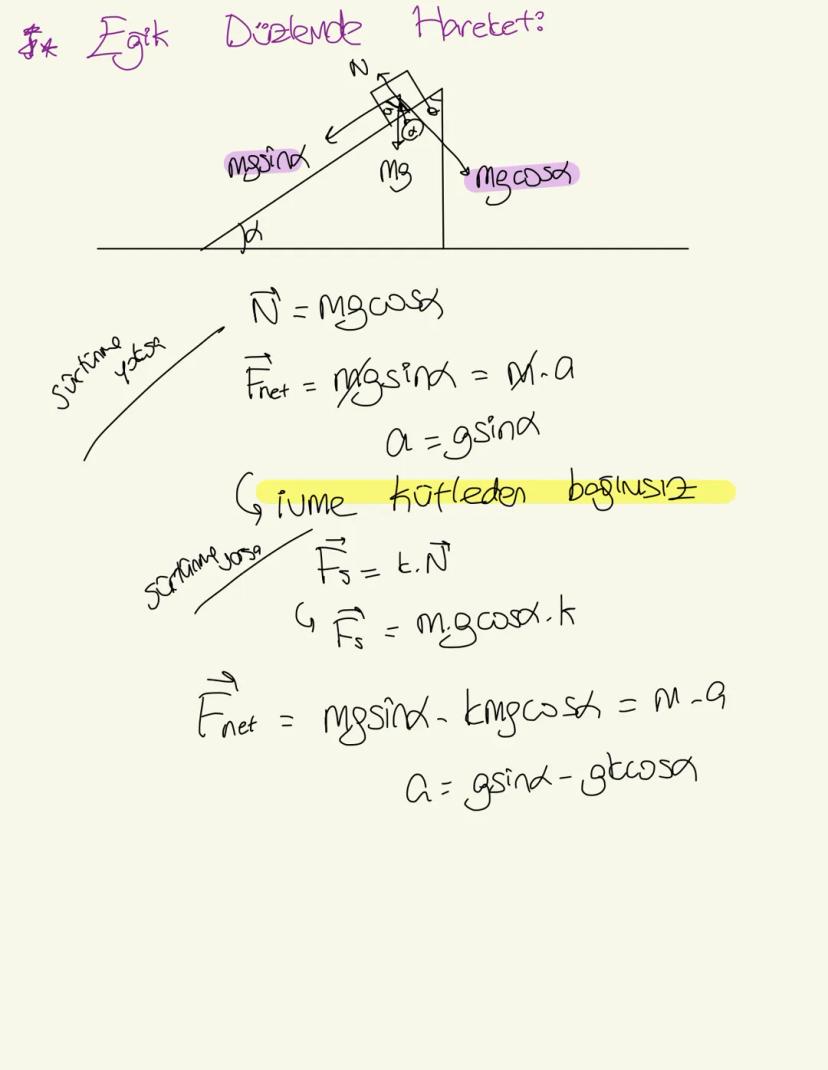 Eğik Düzlemde Hareket:
N
mgsinα
mg
mgcosα
α
α
α
α
N = mgcosα
sürtünme yoksa
Fnet = mgsinα = m.a
a = gsinα
ivme kütleden bağımsız
sürtünme varsa
Fs = k.N
Fs = m.gcosα.k
Fnet = mgsinα - kmgcosα = m.a
a = gsinα - gkcosα